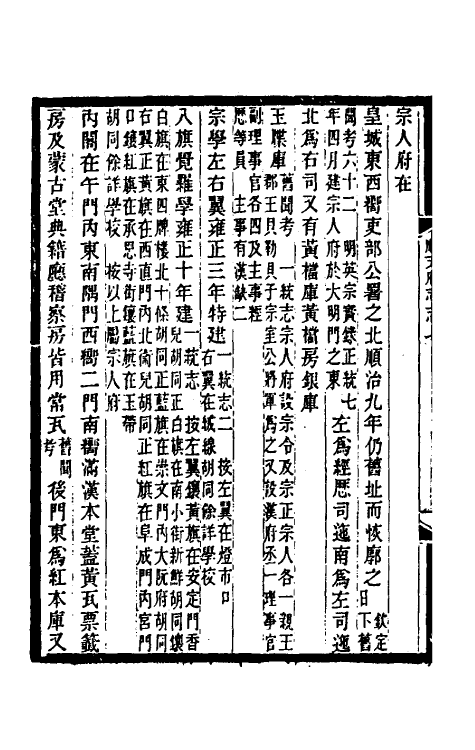 宗人府在
皇城東西嚮吏部公署之北順治九年仍舊址而恢廓之欽定日下舊
聞考六十二 明英宗實錄正統七年四月建宗人府於大明門之東左為經厯司迤南為左司迤
北為右司又有黃檔庫黃檔房銀庫
玉牒庫舊聞考 一統志宗人府設宗令及宗正宗人各一親王郡王貝勒貝子宗室公將軍為之又設漢府丞一理事官
副理事官各四及主事經厯等員 主事有漢缺二
宗學左右翼雍正三年特建一統志二 按左翼在燈市口右翼在絨線胡同餘詳學校
八旗覺羅學雍正十年建一統志 按左翼鑲黃旗在安定門香兒胡同正白旗在南小街新鮮胡同鑲
白旗在東四牌樓北十條胡同正藍旗在崇文門內大阮府胡同右翼正黃旗在西直門內北衛兒胡同正紅旗在阜成門內宮門
口鑲紅旗在承恩寺街鑲藍旗在玉帶胡同餘詳學校 按以上屬宗人府
內閣在午門內東南隅門西嚮二門南嚮滿漢本堂蓋黃瓦票籤
房及蒙古堂典籍廳稽察房皆用常瓦舊聞考後門東為紅本庫又